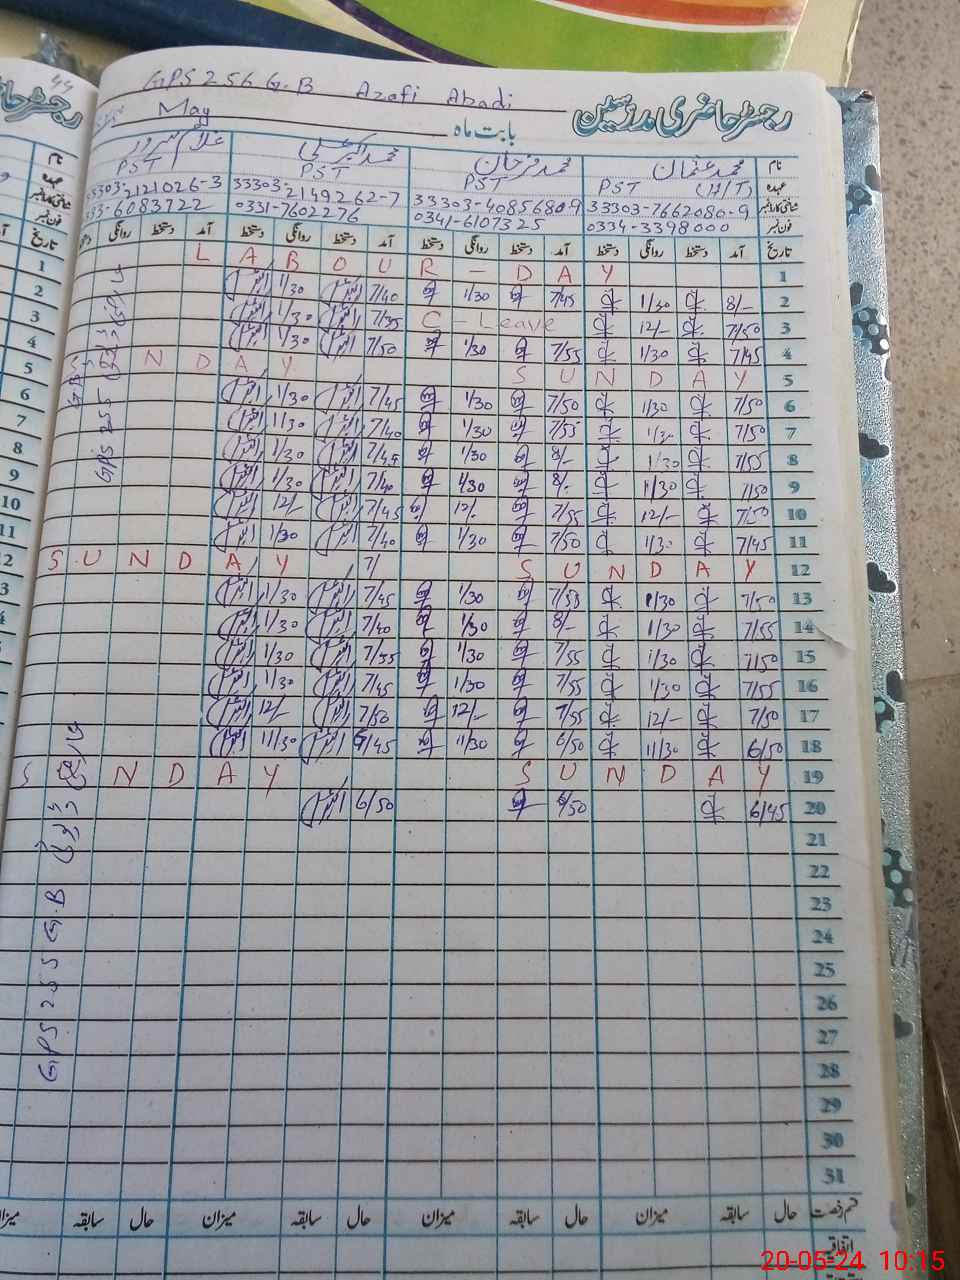 GPS 256 G.B Azafi Abadi
رجسٹر حاضری مدرسین
بابت ماہ May
نام محمد عثمان محمد اکبر علی غلام سرور
عہدہ PST (H/T) PST PST PST
33303-7662080-9 33303-4085680-9 33303-2149262-7 33303-2121026-3
فون نمبر 0334-3398000 0341-6107325 0331-7602276 333-6083722
تاریخ آمد دستخط روانگی دستخط آمد دستخط روانگی دستخط آمد دستخط روانگی دستخط آمد دستخط روانگی
1 LABOUR - DAY
2 8/- 1/30 7/45 1/30 7/40 1/30
3 7/50 12/- C - Leave 7/35 1/30
4 7/45 1/30 7/55 1/30 7/50 1/30
5 SUNDAY SUNDAY
6 7/50 1/30 7/50 1/30 7/45 1/30
7 7/50 1/30 7/55 1/30 7/40 1/30
8 7/55 1/30 8/- 1/30 7/45 1/30
9 7/50 1/30 8/- 1/30 7/40 1/30
10 7/50 12/- 7/55 12/- 7/45 12/-
11 7/45 1/30 7/50 1/30 7/40 1/30
12 SUNDAY 7/ SUNDAY
13 7/50 1/30 7/55 1/30 7/45 1/30
14 7/55 1/30 8/- 1/30 7/40 1/30
15 7/50 1/30 7/55 1/30 7/35 1/30
16 7/55 1/30 7/55 1/30 7/45 1/30
17 7/50 12/- 7/55 12/- 7/50 12/-
18 6/50 11/30 6/50 11/30 6/45 11/30
19 SUNDAY SUNDAY
20 6/45 6/50 6/50
21
22
23
24
25
26
27
28
29
30
31
GPS 255 G.B
GPS 255
قسم رخصت حال سابقہ میزان حال سابقہ میزان حال سابقہ میزان حال سابقہ میزان
اتفاقیہ
20-05-24 10:15